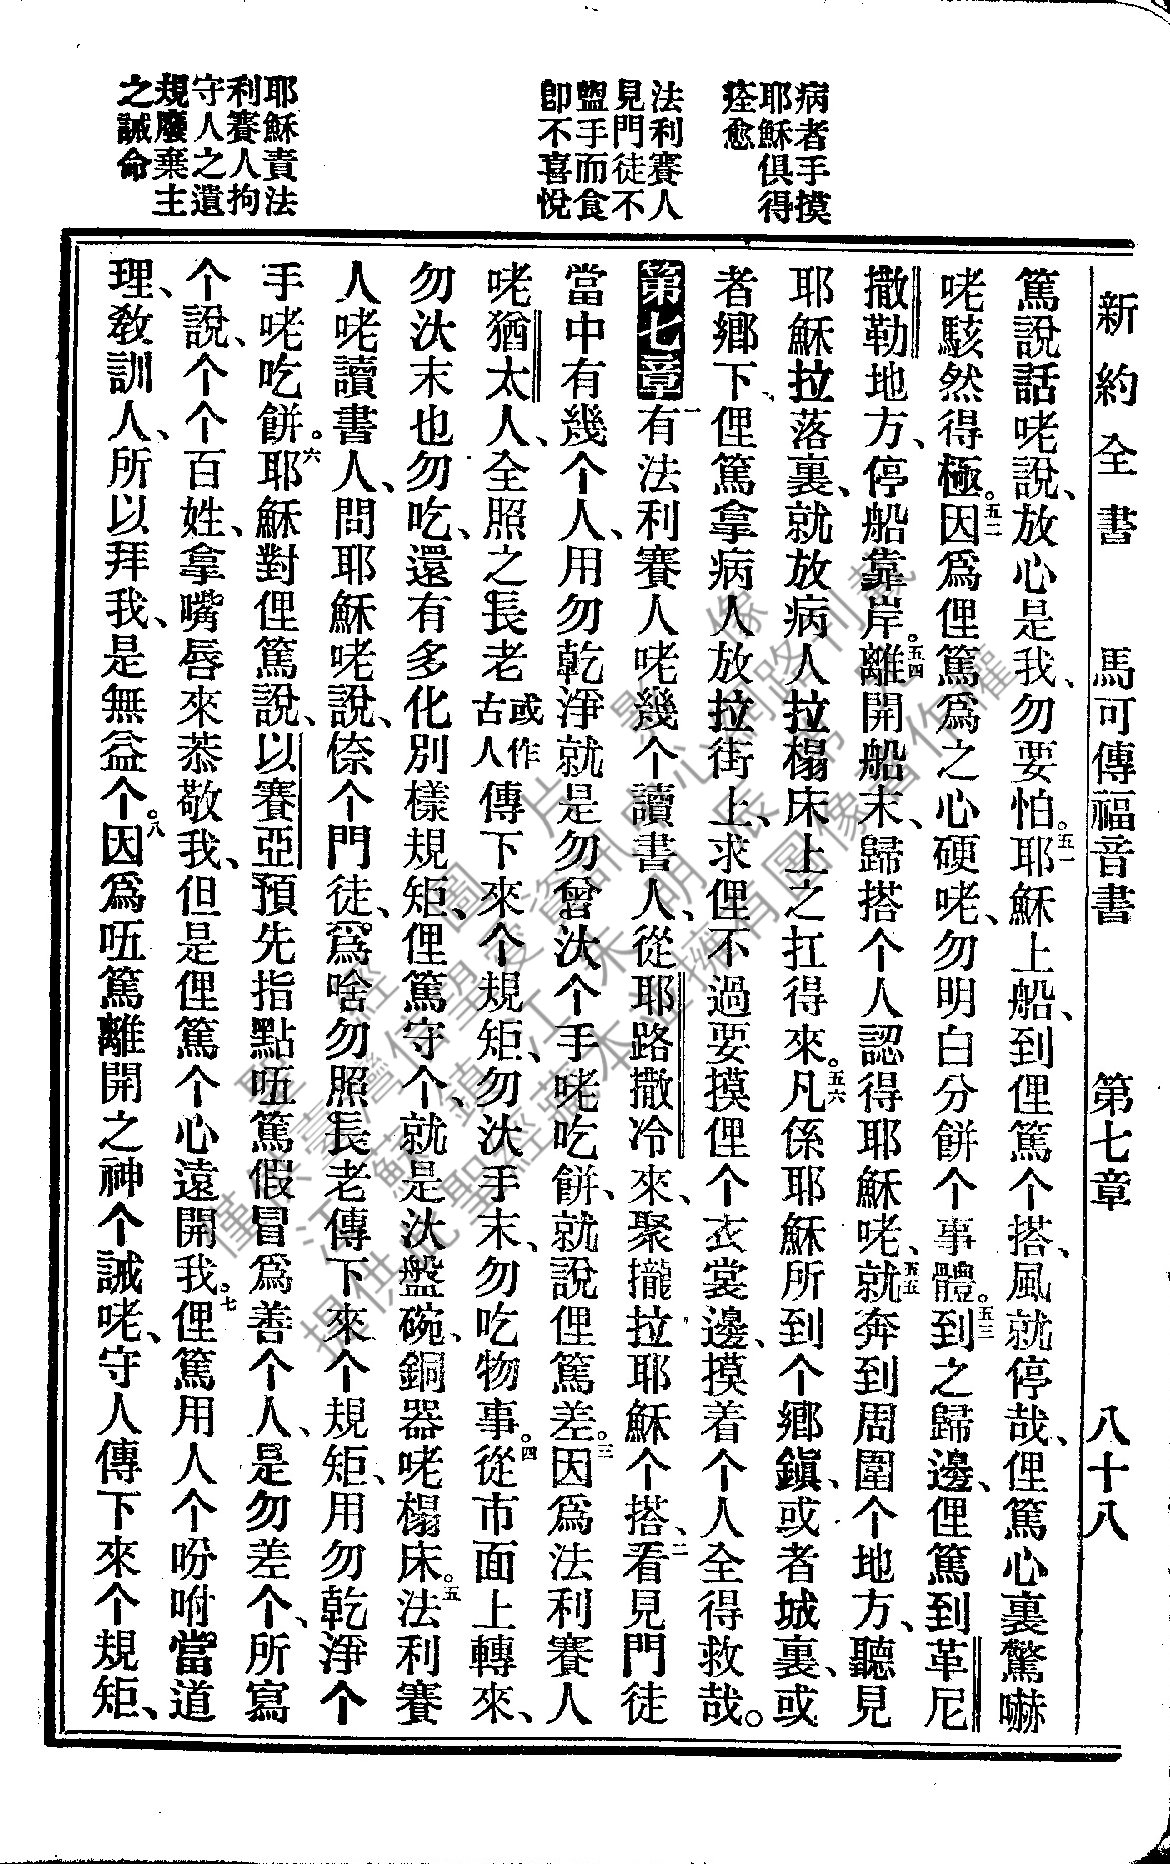 新約全書 馬可傳福音書 第七章 八十八
病者手摸
耶穌俱得
痊愈
法利賽人
見門徒不
盥手而食
卽不喜悅
耶穌責法
利賽人拘
守人之遺
規廢棄主
之誡命
篤說話咾說、放心是我、勿要怕。五一耶穌上船、到俚篤个搭、風就停哉、俚篤心裏驚嚇
咾駭然得極。五二因爲俚篤爲之心硬咾、勿明白分餅个事體。五三到之歸邊、俚篤到革尼
撒勒地方、停船靠岸。五四離開船末、歸搭个人認得耶穌咾、五五就奔到周圍个地方、聽見
耶穌拉落裏、就放病人拉榻床上之扛得來。五六凡係耶穌所到个鄉鎮、或者城裏、或
者鄉下、俚篤拿病人放拉街上、求俚不過要摸俚个衣裳邊、摸着个人全得救哉。
第七章 一有法利賽人咾幾个讀書人、從耶路撒冷來、聚攏拉耶穌个搭、二看見門徒
當中有幾个人、用勿乾淨就是勿曾汏个手咾吃餅、就說俚篤差。三因爲法利賽人
咾猶太人、全照之長老或作古人傳下來个規矩、勿汏手末、勿吃物事。四從市面上轉來、
勿汏末也勿吃、還有多化別樣規矩、俚篤守个、就是汏盤碗、銅器咾榻床。五法利賽
人咾讀書人、問耶穌咾說、倷个門徒、爲啥勿照長老傳下來个規矩、用勿乾淨个
手咾吃餅。六耶穌對俚篤說、以賽亞預先指點㕶篤假冒爲善个人、是勿差个、所寫
个說、个个百姓、拿嘴唇來恭敬我、但是俚篤个心遠開我。七俚篤用人个吩咐當道
理、敎訓人、所以拜我、是無益个。八因爲㕶篤離開之神个誡咾、守人傳下來个規矩、
僅供臺灣信望愛資訊中心網路刊載